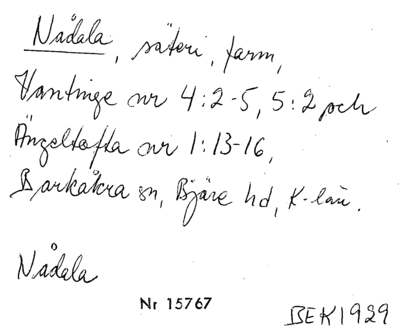 Nådala, säteri, farm,
Vantinge nr 4:2-5, 5:2 och
Ängeltofta nr 1:13-16,
Barkåkra sn, Bjäre hd, K-län.
Nådala
Nr 15767
BEK1929